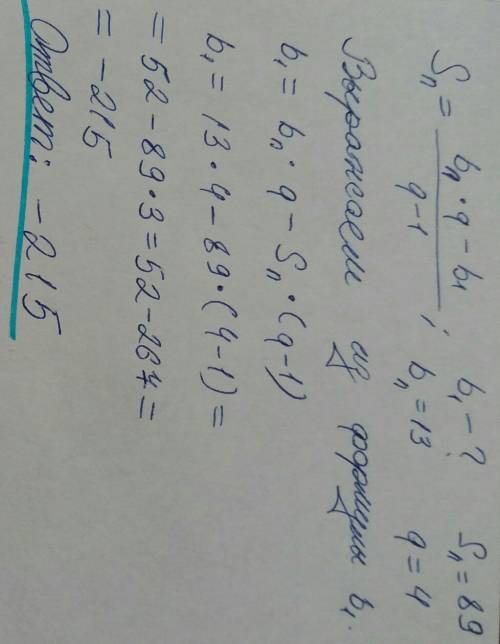 Sₙ = (bₙ · q − b₁) / (q − 1) ; b₁ − ? Sₙ = 89
bₙ = 13 q = 4
Выражаем из формулы b₁.
b₁ = bₙ · q − Sₙ · (q − 1)
b₁ = 13 · 4 − 89 · (4 − 1) =
= 52 − 89 · 3 = 52 − 267 =
= −215
Ответ: −215